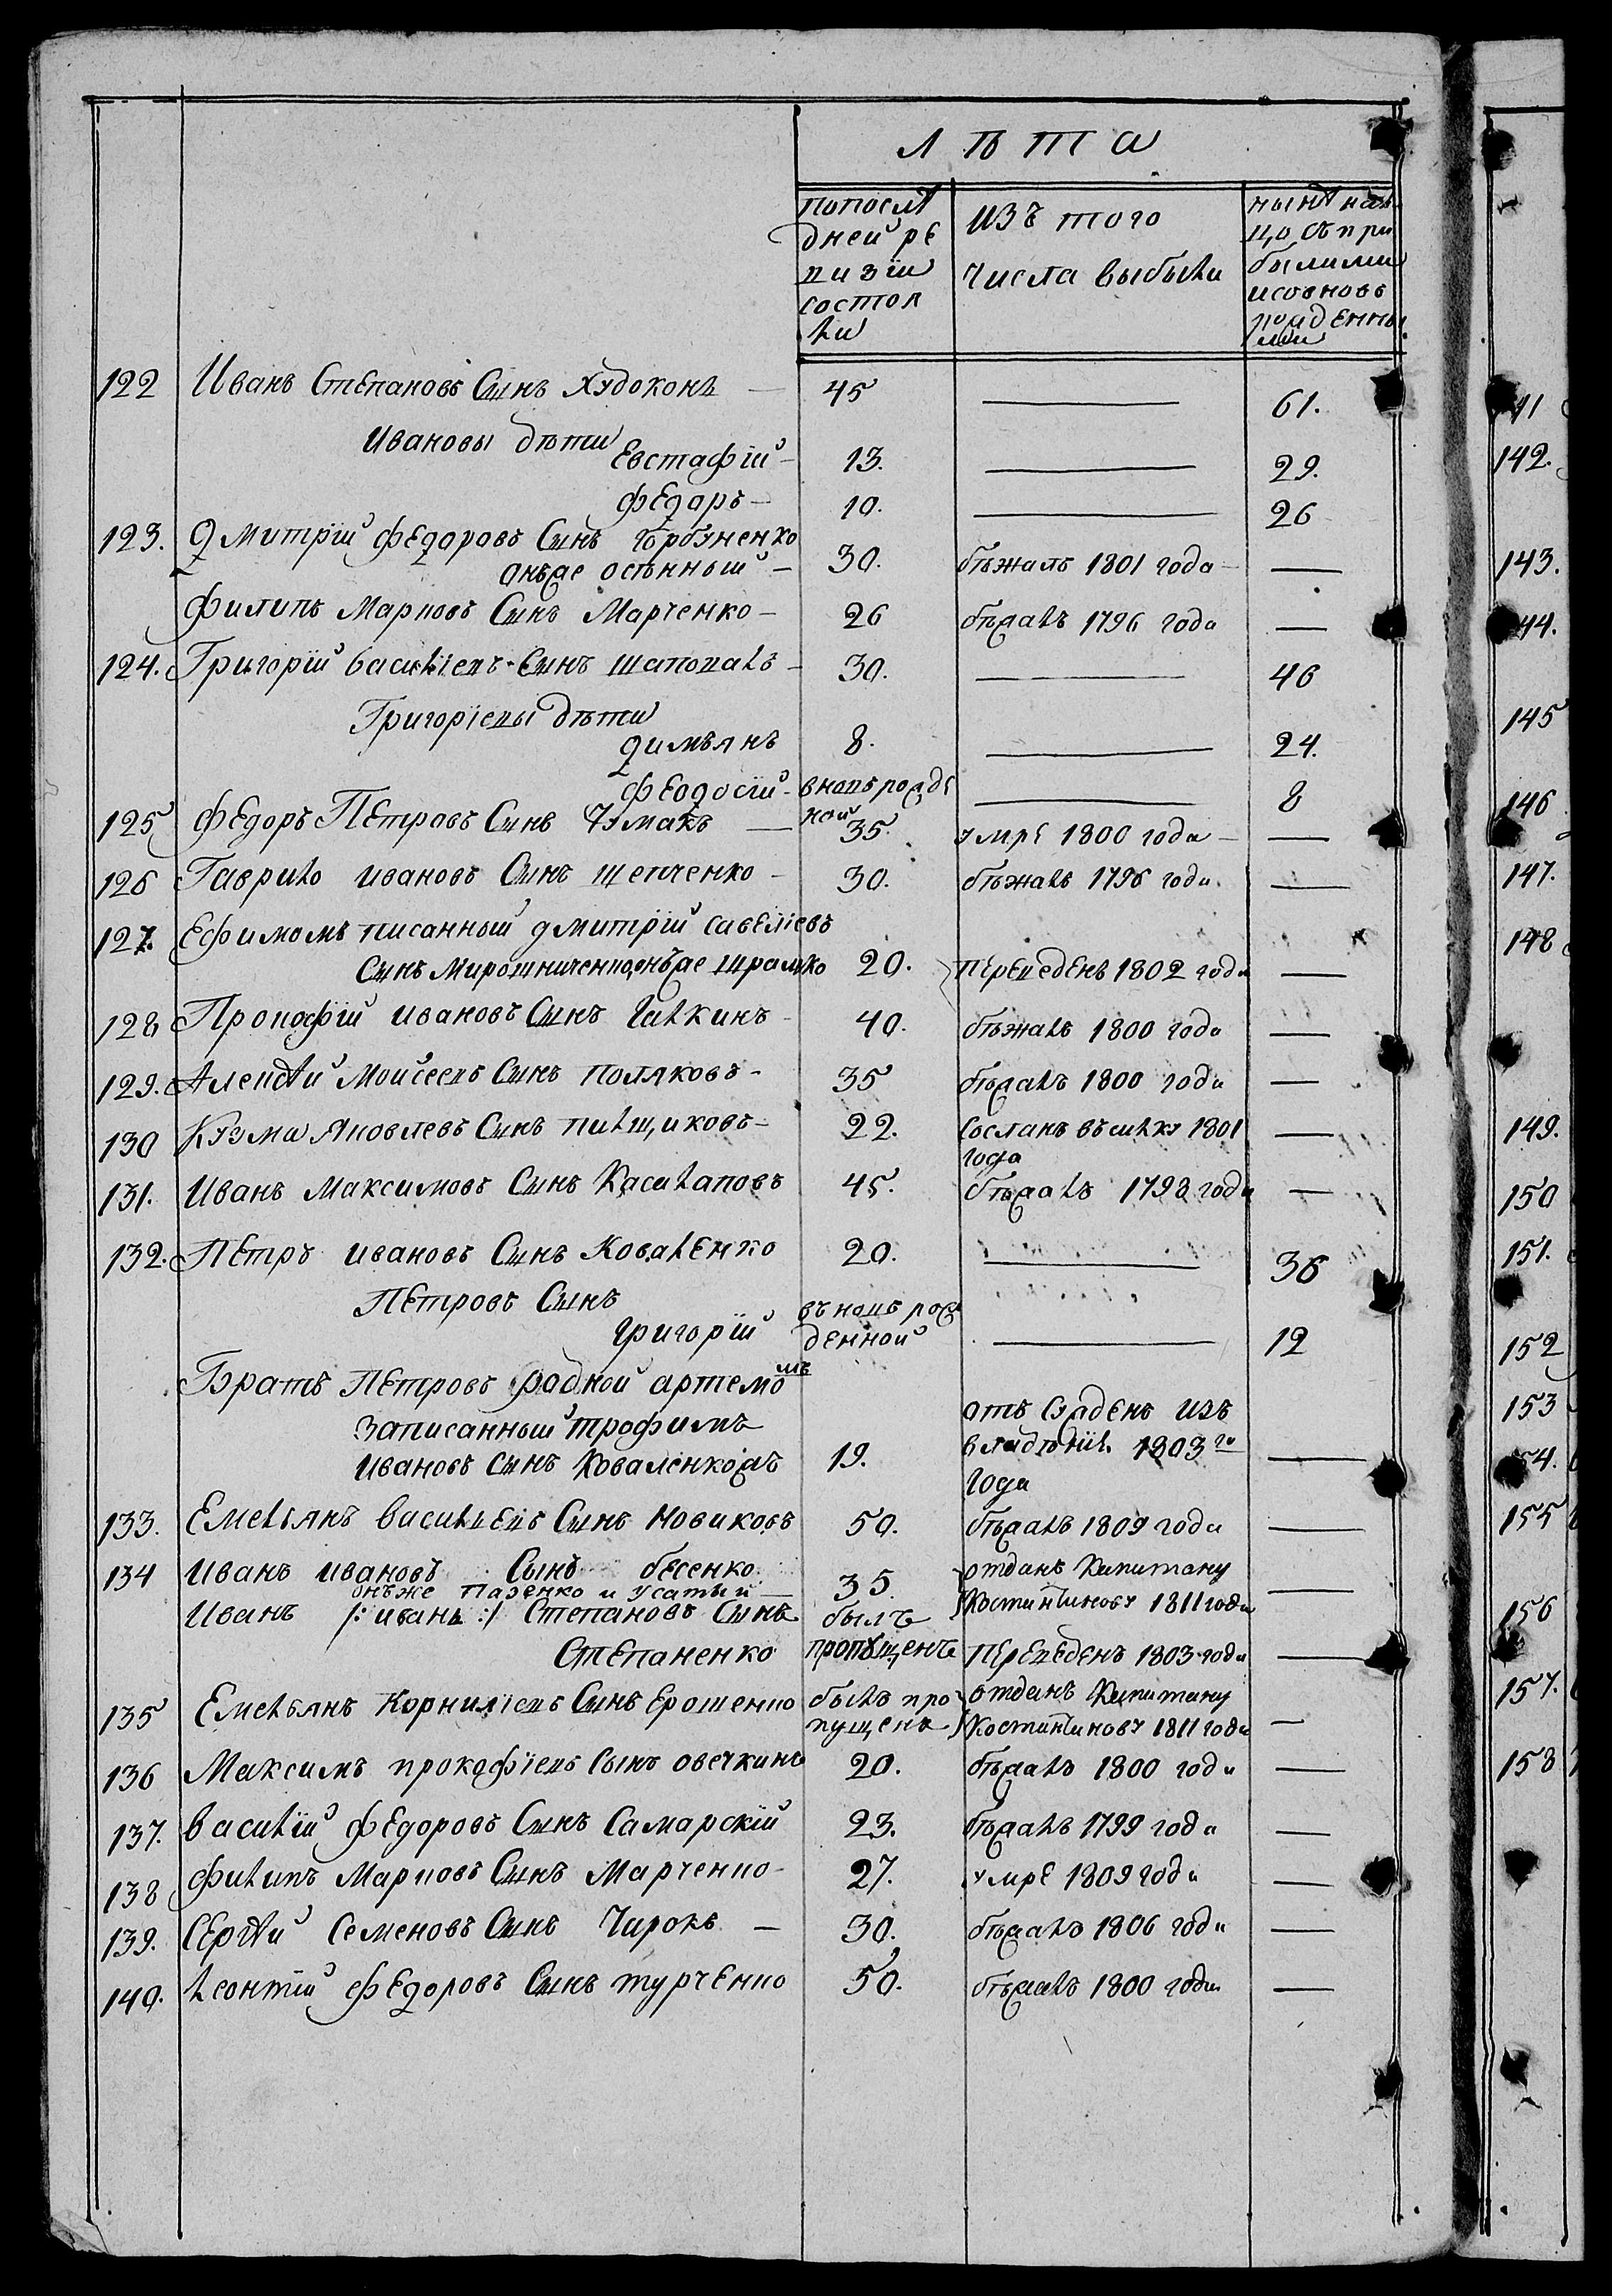 лѣта
попослѣ
дней ре
визiи
состоя
ли
изъ того
числа выбыли
нынѣ на
лицо съ при
былыми
исовновь
рожденны
ми
122 Иванъ Степановъ Сынъ Худоконь — 45 — 61.
Ивановы дѣти
Евстафiй — 13. — 29.
Федоръ — 10. — 26
123. Дмитрiй Федоровъ Сынъ Горбуненко
онъже осѣнный — 30. бѣжалъ 1801 года —
Филипъ Марковъ Сынъ Марченко — 26 бѣжалъ 1796 года —
124. Григорiй Василiевъ Сынъ Шаповалъ — 30. — 46
Григорiевы дѣти
Димьянъ 8. — 24.
Феодосiй — вновь рожде
ной — 8
125 Федоръ Петровъ Сынъ Чумакъ — 35. умре 1800 года —
126 Гаврило Ивановъ Сынъ Шевченко — 30. бѣжалъ 1796 года. —
127. Ефимомъ писанный Дмитрiй Савелiевъ
Сынъ Мирошниченко, онъже Шрамко 20. переведенъ 1802 года —
128 Прокофiй Ивановъ Сынъ Галкинъ — 40. бѣжалъ 1800 года —
129. Алексѣй Моисеевъ Сынъ Поляковъ — 35 бѣжалъ 1800 года —
130 Кузма Яковлевъ Сынъ Пилщиковъ — 22. Сосланъ въсилку 1801
года —
131. Иванъ Максимовъ Сынъ Касилаповъ 45. бѣжалъ 1798 года —
132. Петръ Ивановъ Сынъ Коваленко 20. — 36
Петровъ Сынъ
Григорiй въновь рож
денной — 12
Братъ Петровъ родной Артемомъ
записанный Трофимъ
Ивановъ Сынъ Коваленкожъ 19. отъ сужденъ изъ
владѣнiя 1803го
года —
133. Емельянъ Васильевъ Сынъ Новиковъ 50. бѣжалъ 1809 года —
134 Иванъ Ивановъ Сынъ Бесенко 35. отданъ Капитану
онъже Пазенко и Усатый — Костантинову 1811 года —
Иванъ /: Иванъ :/ Степановъ Сынъ былъ
Степаненко пропущенъ переведенъ 1803 года —
135 Емельянъ Корнилiевъ Сынъ Ерошенко былъ про отданъ Капитану
пущенъ Костантинову 1811 года —
136 Максимъ Прокофiевъ Сынъ Овечкинъ 20. бѣжалъ 1800 года —
137. Василiй Федоровъ Сынъ Самарскiй 23. бѣжалъ 1799 года —
138 Филипъ Марковъ Сынъ Марченко — 27. умре 1809 года —
139. Сергѣй Семеновъ Сынъ Чирокъ — 30. бѣжалъ 1806 года —
140. Леонтiй Федоровъ Сынъ Турченко 50. бѣжалъ 1800 года —
142.
143.
145
146
147.
148
149.
150
151.
152
153
155
156
157.
158